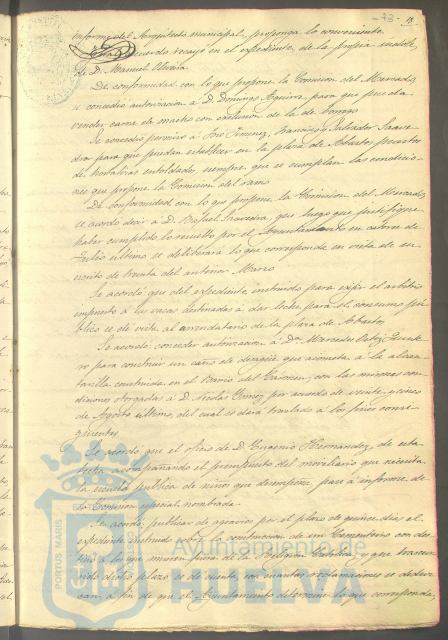 informe del Arquitecto municipal, proponga lo conveniente.
acuerdo recayó en el expediente, de la propia índole,
de D. Manuel
De conformidad con lo que propone la Comision del Mercado,
se concedió autorizacion á D. Domingo Aguirre para que pueda
vender carne de macho con exclusion de la de
Se concedió permiso á José Jimenez, Francisco y Salvador Saave-
dra para que puedan establecer en la plaza de Abastos puestos
de hortalizas entoldado, siempre que se cumplan las condicio-
nes que propone la Comision del ramo
De conformidad con lo que propone la Comision del Mercado,
se acordó decir á D. Rafael Saavedra, que luego que justifique
haber cumplido lo resuelto por el Ayuntamiento en catorce de
Julio último se deliberará lo que corresponda en vista de su
escrito de treinta del anterior Marzo
Se acordó que del expediente instruido para exijir el arbitrio
impuesto á las vacas destinadas á dar leche para el consumo pú-
blico se dé vista al arrendatario de la plaza de Abastos
Se acordó conceder autorizacion á Dª Mercedes Ortiz
para construir un caño de desagüe que acometa á la alcan-
tarilla construida en el Barrio del con las mismas con-
diciones otorgadas á D. Nicolás Gomez por acuerdo de veinte y cinco
de Agosto último, del cual se dará traslado á los fines conse-
guientes
Se acordó que el oficio de D. Eugenio Hernandez, de esta
fecha acompañando el presupuesto del moviliario que necesita
la escuela publica de niños que desempeña, pase á informe de
la Comision especial nombrada
Se acordó publicar de agravios por el plazo de quince dias el
expediente instruido sobre construccion de un Cementerio con des-
tino á los que mueran fuera de la Religion Católica y que transcur-
rido dicho plazo se dé cuenta, con cuantas reclamaciones se deduz-
can, á fin de que el Ayuntamiento determine lo que corresponda,
PORTUS MARIS
Ayuntamiento de
HUELVA